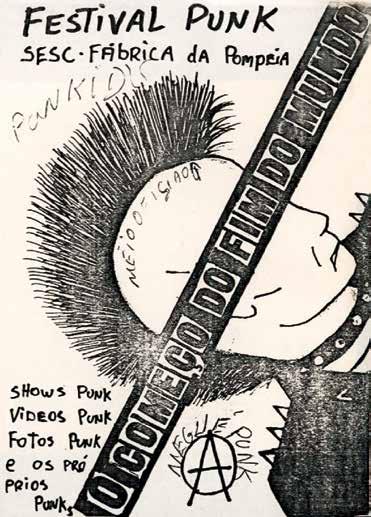 FESTIVAL PUNK
SESC·FÁBRICA da POMPEIA
PUNKIDS
O COMEÇO DO FIM DO MUNDO
SHOWS PUNK
VÍDEOS PUNK
FOTOS PUNK
e os PRÓ
PRIOS
PUNKs
PUNK
A